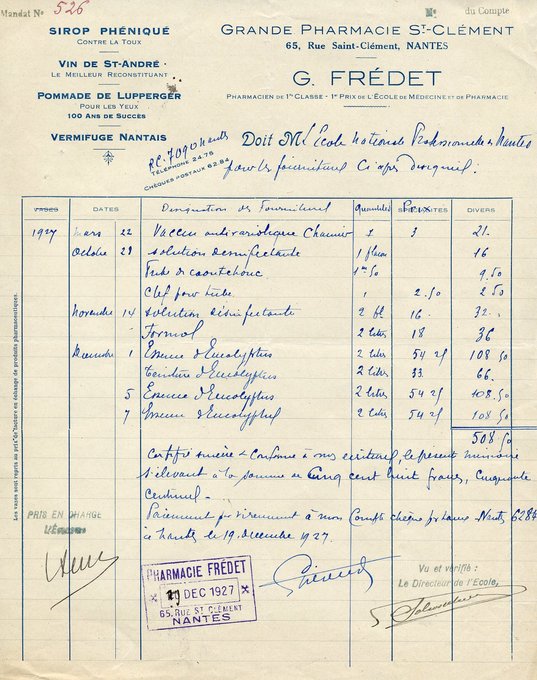 Mandat No 526
No du Compte
SIROP PHÉNIQUÉ
CONTRE LA TOUX
VIN DE ST-ANDRÉ
LE MEILLEUR RECONSTITUANT
POMMADE DE LUPPERGER
POUR LES YEUX
100 ANS DE SUCCÈS
VERMIFUGE NANTAIS
GRANDE PHARMACIE ST-CLÉMENT
65, RUE SAINT-CLÉMENT, NANTES
G. FRÉDET
PHARMACIEN DE 1re CLASSE - 1er PRIX DE L'ÉCOLE DE MÉDECINE ET DE PHARMACIE
R.C. 7090 Nantes
TÉLÉPHONE 24.76
CHÈQUES POSTAUX 62.84
Doit M l'École Nationale Professionnelle de Nantes
pour les fournitures
VASES DATES Désignation des Fournitures Quantités Prix SPÉCIALITÉS DIVERS
1927 mars 22 Vaccin antivariolique 7 3 21.
Octobre 29 solution désinfectante 1 flacon 16
Tube de caoutchouc 1m50 9.50
Clef pour tube 1 2.50 2.50
Novembre 14 solution désinfectante 2 fl 16. 32.
Formol 2 litres 18 36
Décembre 1 Essence d'Eucalyptus 2 litres 54 25 108 50
teinture d'Eucalyptus 2 litres 33. 66.
5 Essence d'Eucalyptus 2 litres 54 25 108.50
7 Essence d'Eucalyptus 2 litres 54 25 108 50
508 50
Certifié sincère & conforme à nos écritures, le présent mémoire
s'élevant à la somme de Cinq cent huit francs, cinquante
centimes.
Paiement par virement à mon Compte chèque postaux Nantes 6284
à Nantes le 19 décembre 1927.
Les vases sont repris au prix de facture en échange de produits pharmaceutiques.
PRIS EN CHARGE
PHARMACIE FRÉDET
DEC 1927
65, RUE ST CLÉMENT
NANTES
Vu et vérifié :
Le Directeur de l'École,